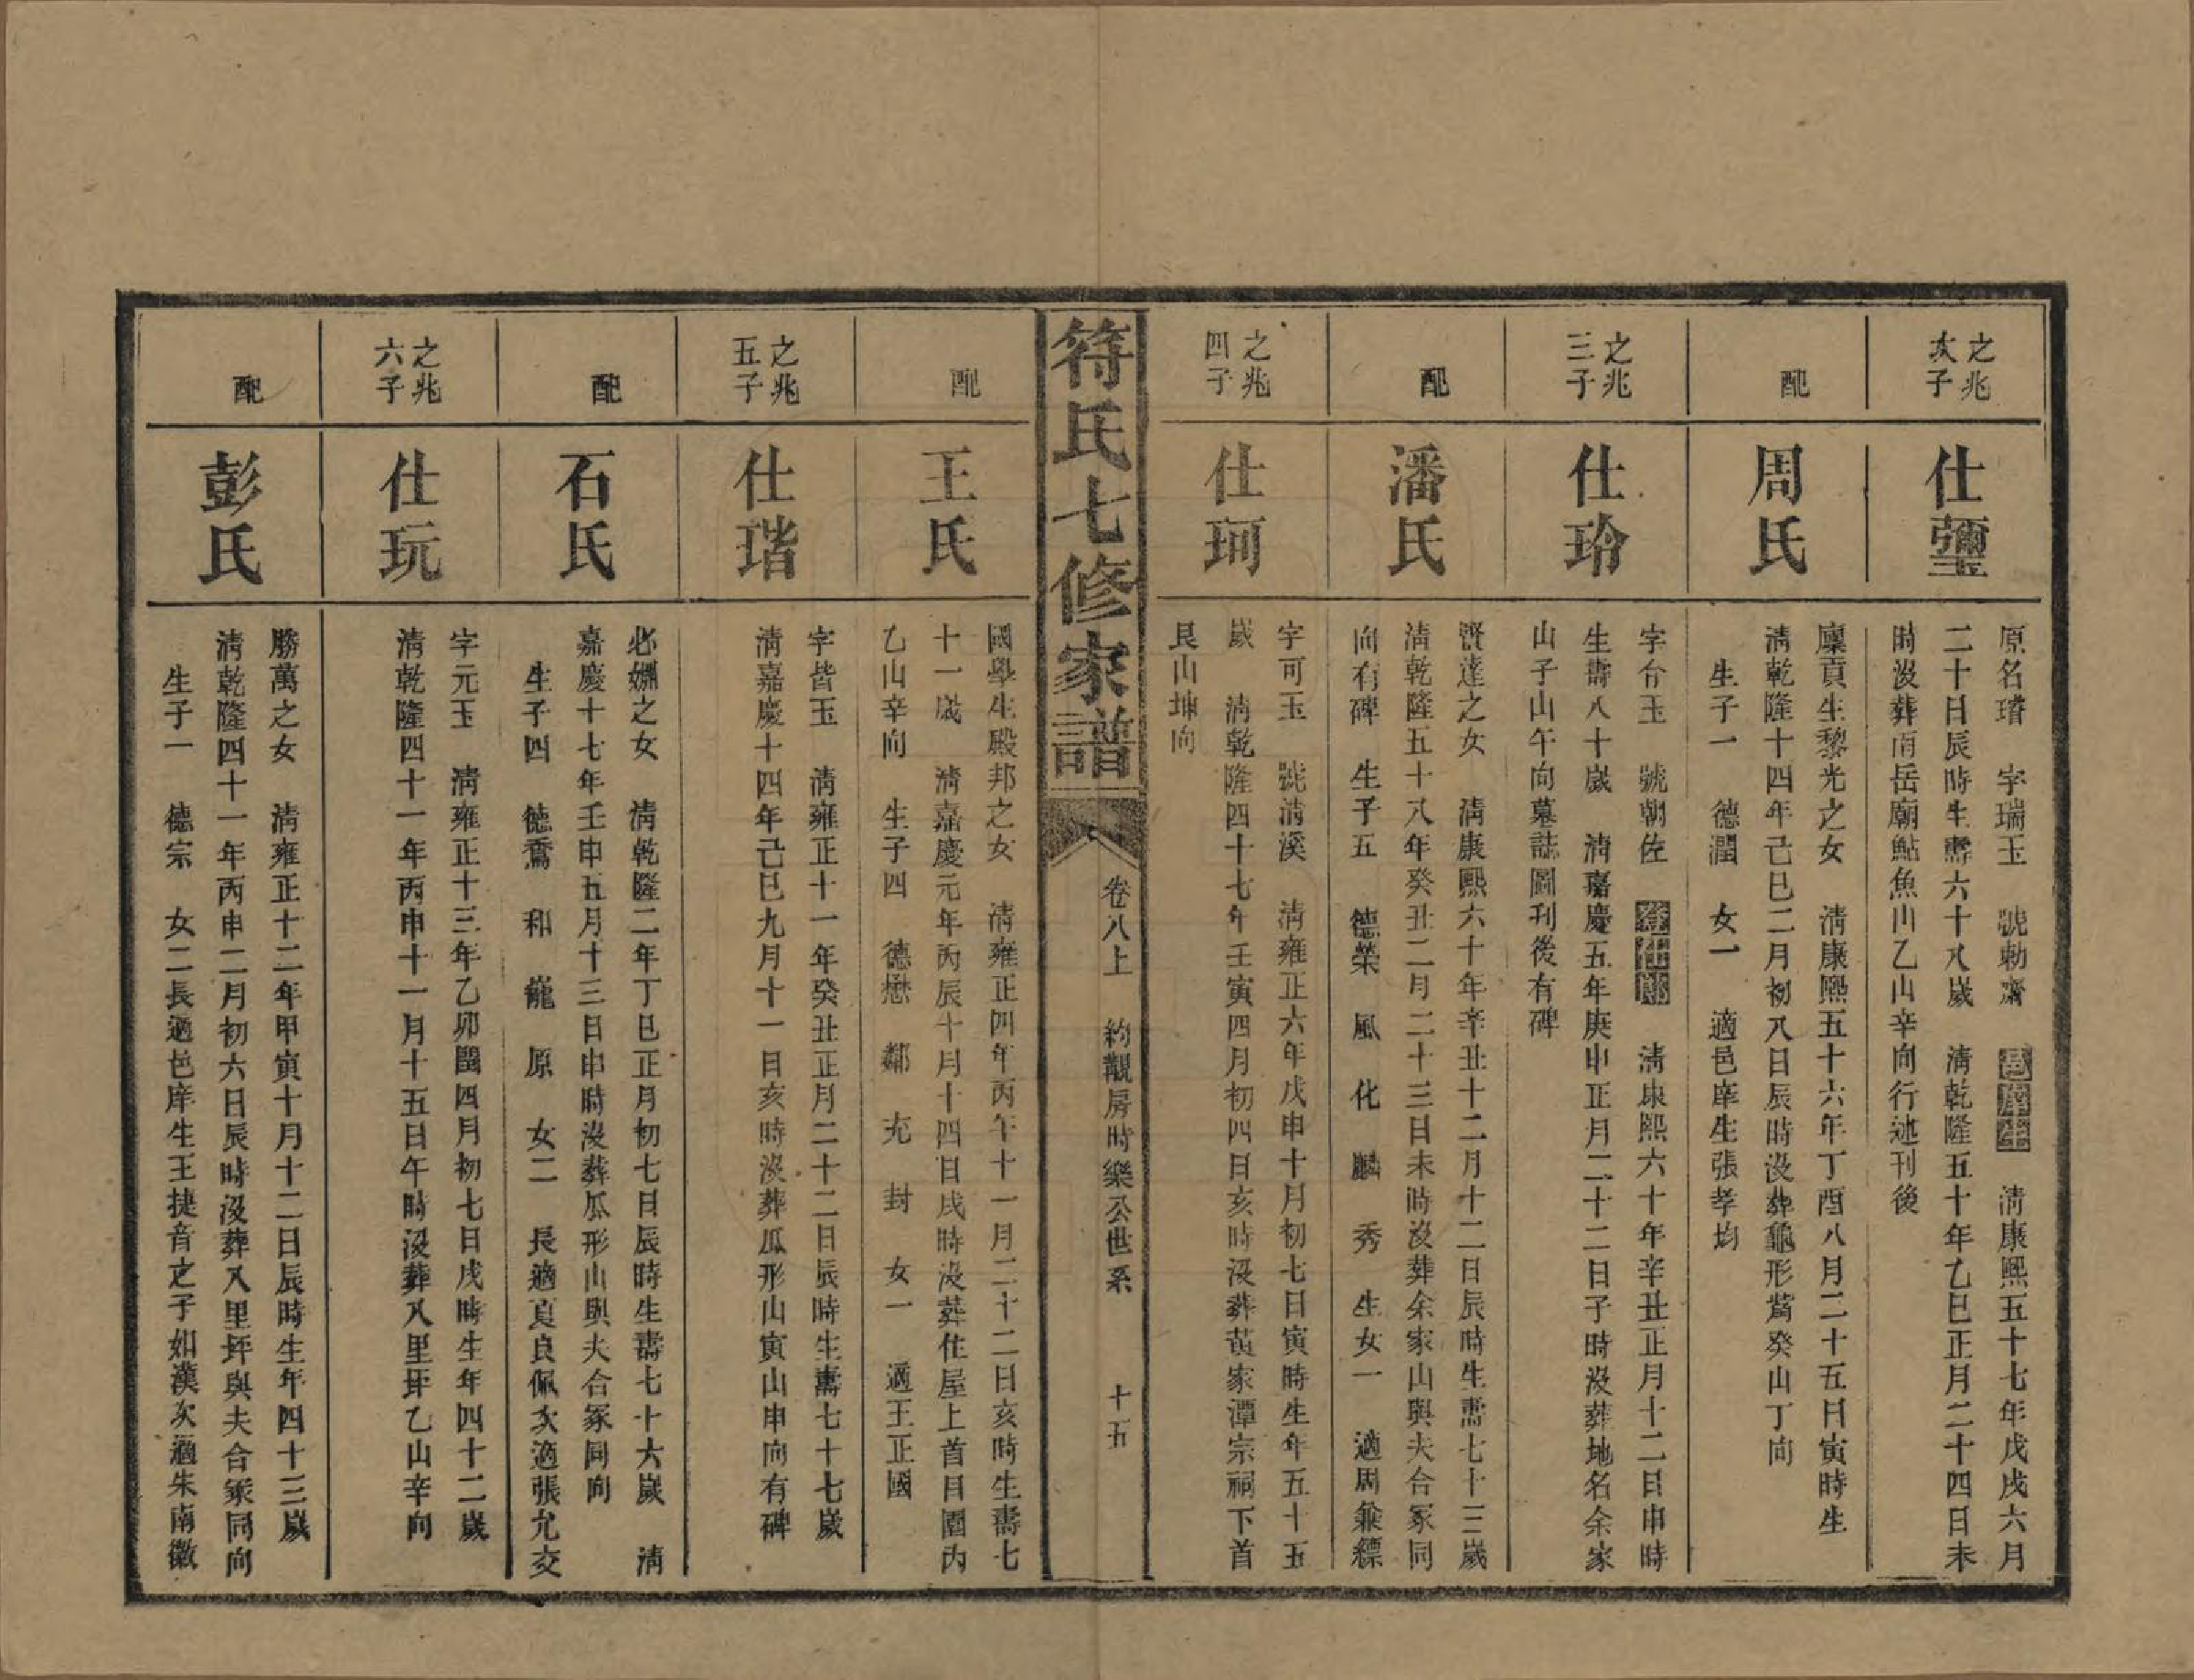 之兆
次子
仕璽
原名璿　字瑞玉　號勅齋　邑庠生　淸康熙五十七年戊戌六月
二十日辰時生壽六十八歲　淸乾隆五十年乙巳正月二十四日未
時沒葬南岳廟鮎魚山乙山辛向行述刊後
配
周氏
廩貢生黎光之女　淸康熙五十六年丁酉八月二十五日寅時生
淸乾隆十四年己巳二月初八日辰時沒葬龜形嘴癸山丁向
生子一　德潤　女一　適邑庠生張孝均
之兆
三子
仕玲
字介玉　號朝佐　登仕郎　淸康熙六十年辛丑正月十二日申時
生壽八十歲　淸嘉慶五年庚申正月二十二日子時沒葬地名余家
山子山午向墓誌圖刊後有碑
配
潘氏
賢達之女　淸康熙六十年辛丑十二月十二日辰時生壽七十三歲
淸乾隆五十八年癸丑二月二十三日未時沒葬余家山與夫合冢同
向有碑　生子五　德榮　風　化　麟　秀　生女一　適周兼縹
之兆
四子
仕珂
字可玉　號淸溪　淸雍正六年戊申十月初七日寅時生年五十五
歲　淸乾隆四十七年壬寅四月初四日亥時沒葬黃家潭宗祠下首
艮山坤向
符氏七修家譜
卷八上　約觀房時樂公世系　十五
配
王氏
國學生殿邦之女　淸雍正四年丙午十一月二十二日亥時生壽七
十一歲　淸嘉慶元年丙辰十月十四日戌時沒葬住屋上首目園內
乙山辛向　生子四　德懋　鄰　充　封　女一　適王正國
之兆
五子
仕瑎
字皆玉　淸雍正十一年癸丑正月二十二日辰時生壽七十七歲
淸嘉慶十四年己巳九月十一日亥時沒葬瓜形山寅山申向有碑
配
石氏
必嫻之女　淸乾隆二年丁巳正月初七日辰時生壽七十六歲　淸
嘉慶十七年壬申五月十三日申時沒葬瓜形山與夫合冢同向
生子四　德喬　和　龍　原　女二　長適袁良佩次適張允交
之兆
六子
仕玩
字元玉　淸雍正十三年乙卯閏四月初七日戌時生年四十二歲
淸乾隆四十一年丙申十一月十五日午時沒葬八里坪乙山辛向
配
彭氏
勝萬之女　淸雍正十二年甲寅十月十二日辰時生年四十三歲
淸乾隆四十一年丙申二月初六日辰時沒葬八里坪與夫合冢同向
生子一　德宗　女二長適邑庠生王捷音之子如漢次適朱南徽